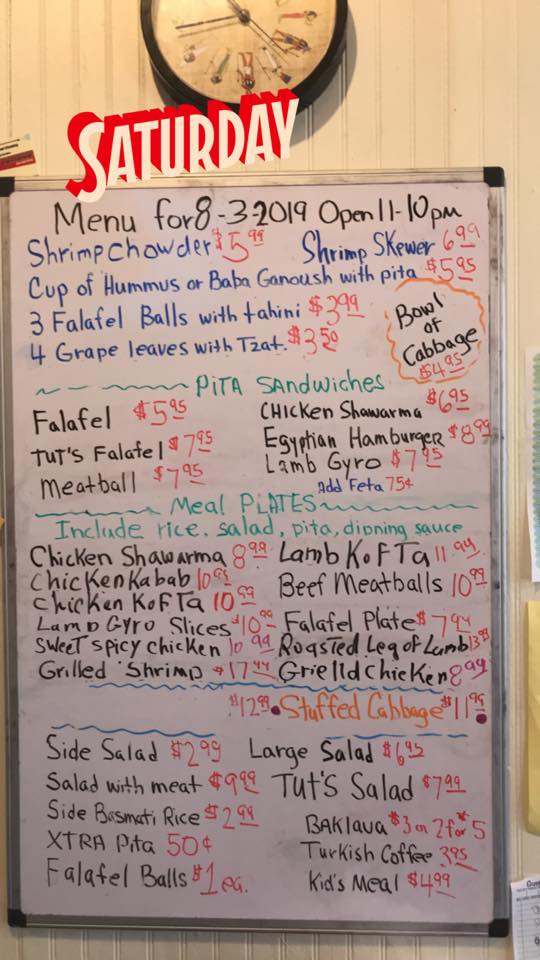 SATURDAY
Menu for 8-3-2019 Open 11-10pm
Shrimp Chowder $5.99 Shrimp Skewer 6.99
Cup of Hummus or Baba Ganoush with pita $5.95
3 Falafel Balls with tahini $3.99
4 Grape leaves with Tzat. $3.50
Bowl
of
Cabbage
$4.95
PiTA SAndwiches
Falafel $5.95 CHicken Shawarma $6.95
TUT'S Falafel $7.95 Egyptian Hamburger $8.99
Meatball $7.95 Lamb Gyro $7.95
Add Feta 75¢
Meal PLATES
Include rice, salad, pita, dipping sauce
Chicken Shawarma 8.99 Lamb KoFTa 11.99
Chicken Kabab 10.95 Beef Meatballs 10.99
Chicken KoFTa 10.99 Falafel Plate $7.94
Lamb Gyro Slices $10.99 Roasted Leg of Lamb
Sweet Spicy Chicken 10.99 Grielld Chicken 8.99
Grilled Shrimp $17.44
$12.99 Stuffed Cabbage $11.95
Side Salad $2.99 Large Salad $6.95
Salad with meat $9.99 TUT'S Salad $7.99
Side Basmati Rice $2.99 BAKlava $3 or 2 for $5
XTRA Pita 50¢ Turkish Coffee 3.95
Falafel Balls $1 ea. Kid's Meal $4.99